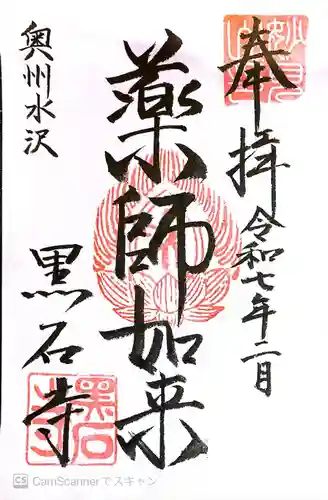 奉拝
令和七年二月
薬師如来
奥州水沢
黒石寺
妙見山
黒石寺
CS CamScannerでスキャン